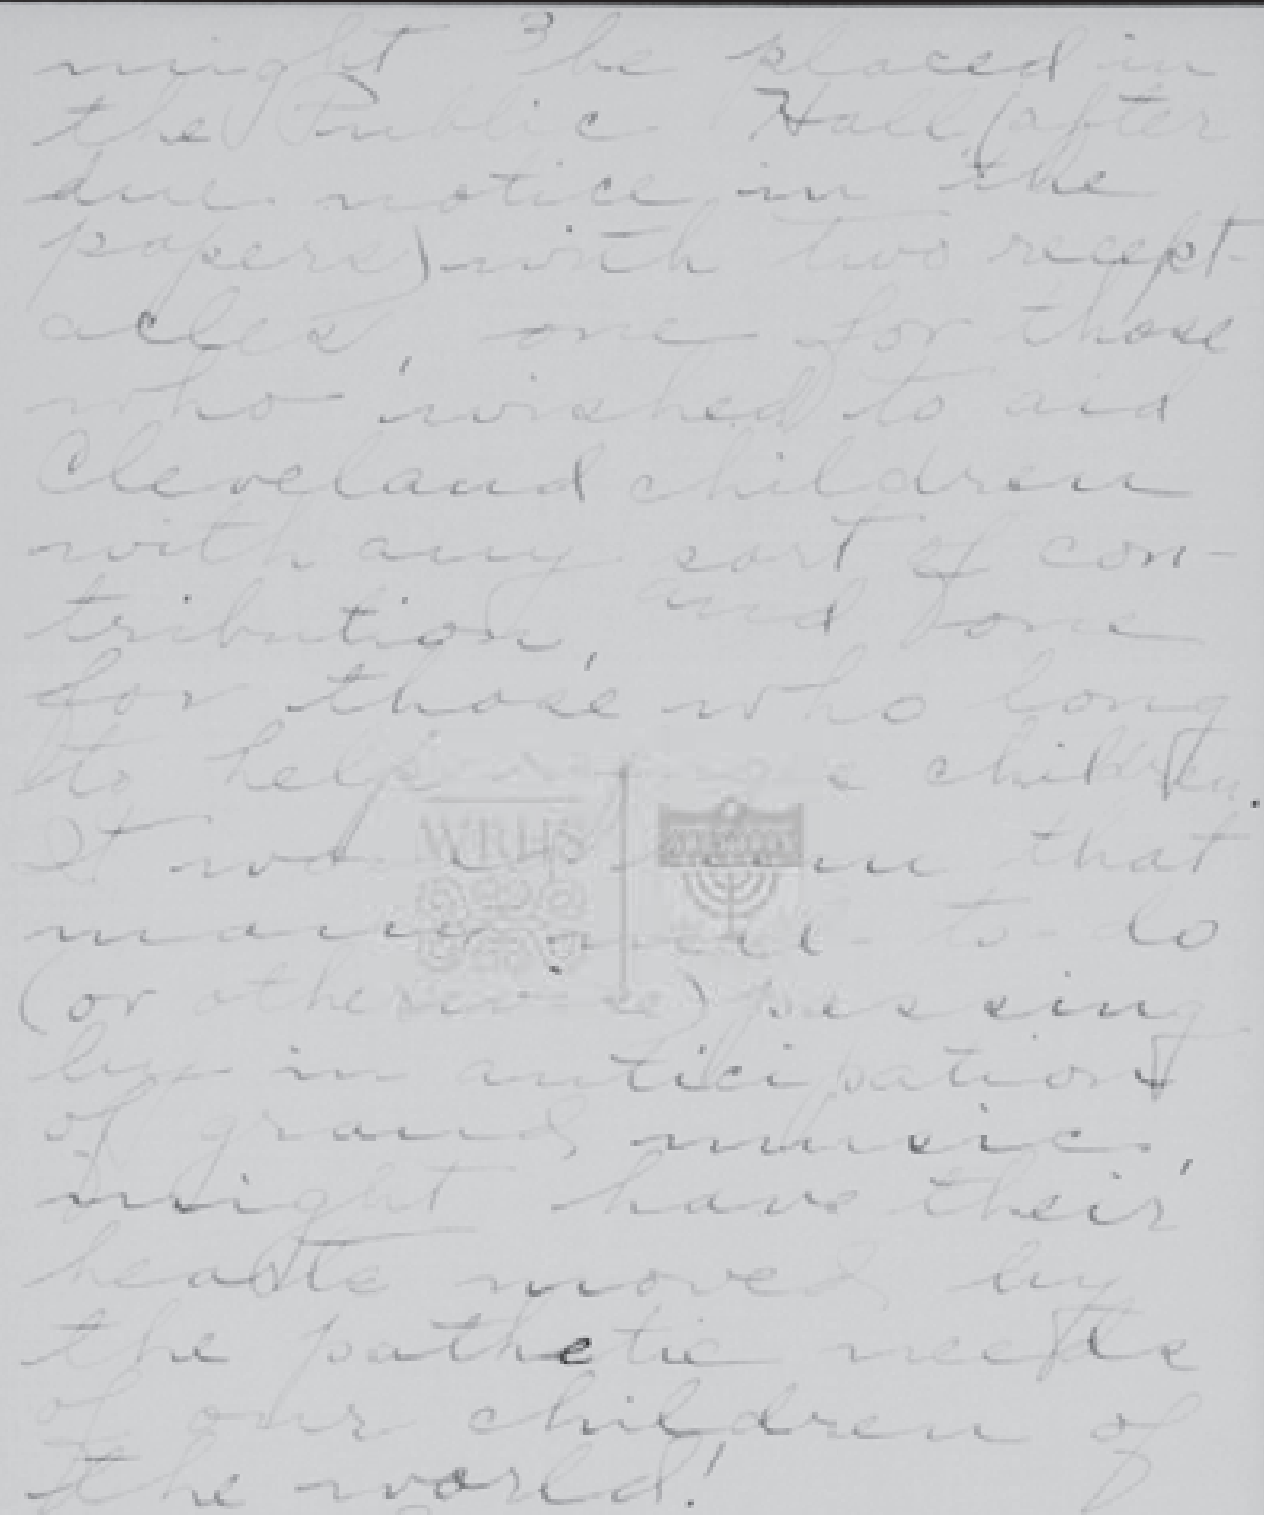 3
might be placed in
the Public Hall (after
due notice in the
papers) with two recept-
acles, one for those
who wished to aid
Cleveland children
with any sort of con-
tribution, and one
for those who long
to help refugee children.
It would seem that
many well-to-do
(or otherwise) passing
by in anticipation
of grand music,
might have their
hearts moved by
the pathetic needs
of our children of
the world!
WRHS